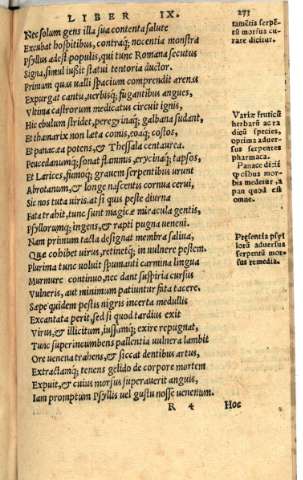 LIBER IX. 273
Nec solum gens illa sua contenta salute
Excubat hospitibus, contraq; nocentia monstra
Psyllus adest populis, qui tunc Romana secutus
Signa, simul iussit statui tentoria ductor.
Primum quas ualli spacium comprendit arenas
Expurgat cantu, uerbisq; fugantibus angues,
Vltima castrorum medicatus circuit ignis,
Hic ebulum stridet, peregrinaq; galbana sudant,
Et thamarix non læta comis, eoaq; costos,
Et panacea potens, & Thessala centaurea.
Peucedanumq; sonat flammis, erycinaq; tapsos,
Et Larices, fumoq; grauem serpentibus urunt
Abrotanum, & longe nascentis cornua cerui,
Sic nox tuta uiris. at si quis peste diurna
Fata trahit, tunc sunt magicæ miracula gentis,
Psyllorumq; ingens, & rapti pugna ueneni.
Nam primum tacta designat membra saliua,
Quæ cohibet uirus, retinetq; in uulnere pestem.
Plurima tunc uoluit spumanti carmina lingua
Murmure continuo, nec dant suspiria cursus
Vulneris, aut minimum patiuntur fata tacere.
Sæpe quidem pestis nigris inserta medullis
Excantata perit, sed si quod tardius exit
Virus, & illicitum, iussumq; exire repugnat,
Tunc superincumbens pallentia uulnera lambit
Ore uenena trahens, & siccat dentibus artus,
Extractamq; tenens gelido de corpore mortem
Expuit, & cuius morsus superauerit anguis,
Iam promptum Psyllis uel gustu nosse uenenum.
R 4 Hoc
serpē
tū morsus cu
rare dicitur.
Variæ fruticū
herbarū ac ra
dicū species,
optima aduer-
sus serpentes
pharmaca.
morsibus
bis medetur, a
pan quod est
omne.
Presentia psyl
lorū aduersus
serpentū mor-
sus remedia.